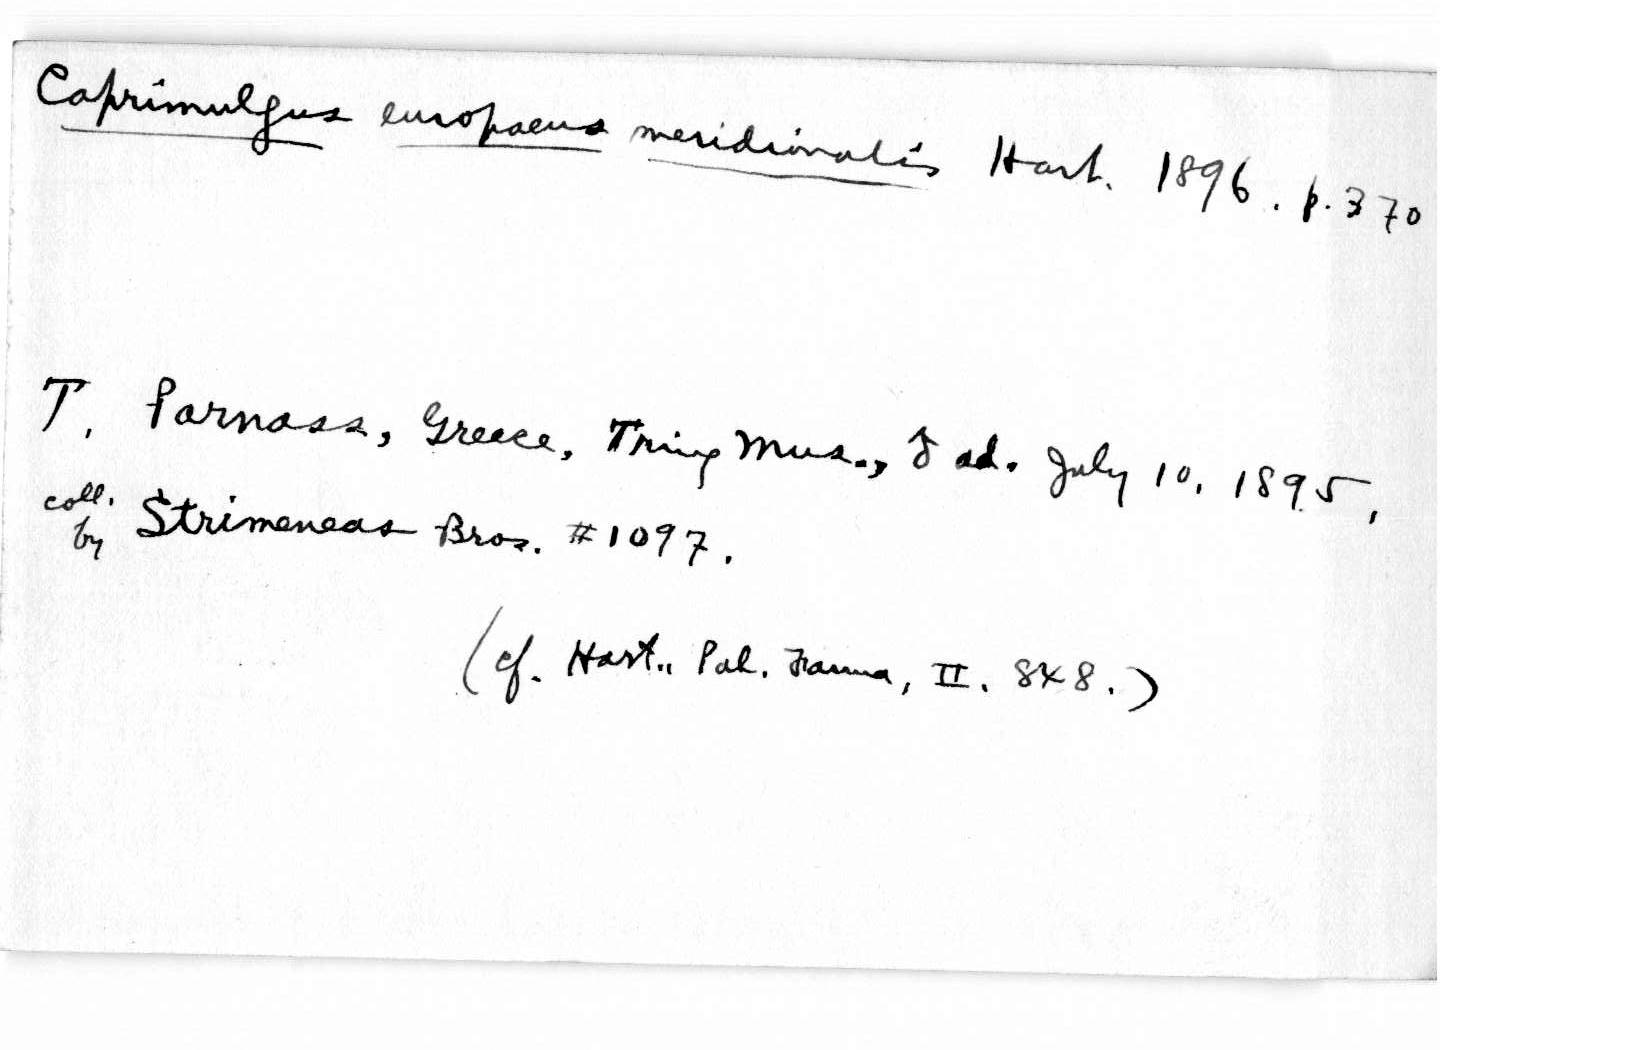 Caprimulgus europaeus meridionalis Hart. 1896. p. 370
T. Parnass, Greece, Tring Mus., ♂ ad. July 10, 1895,
coll. by Strimeneas Bros. #1097.
(cf. Hart., Pal. Fauna, II. 848.)